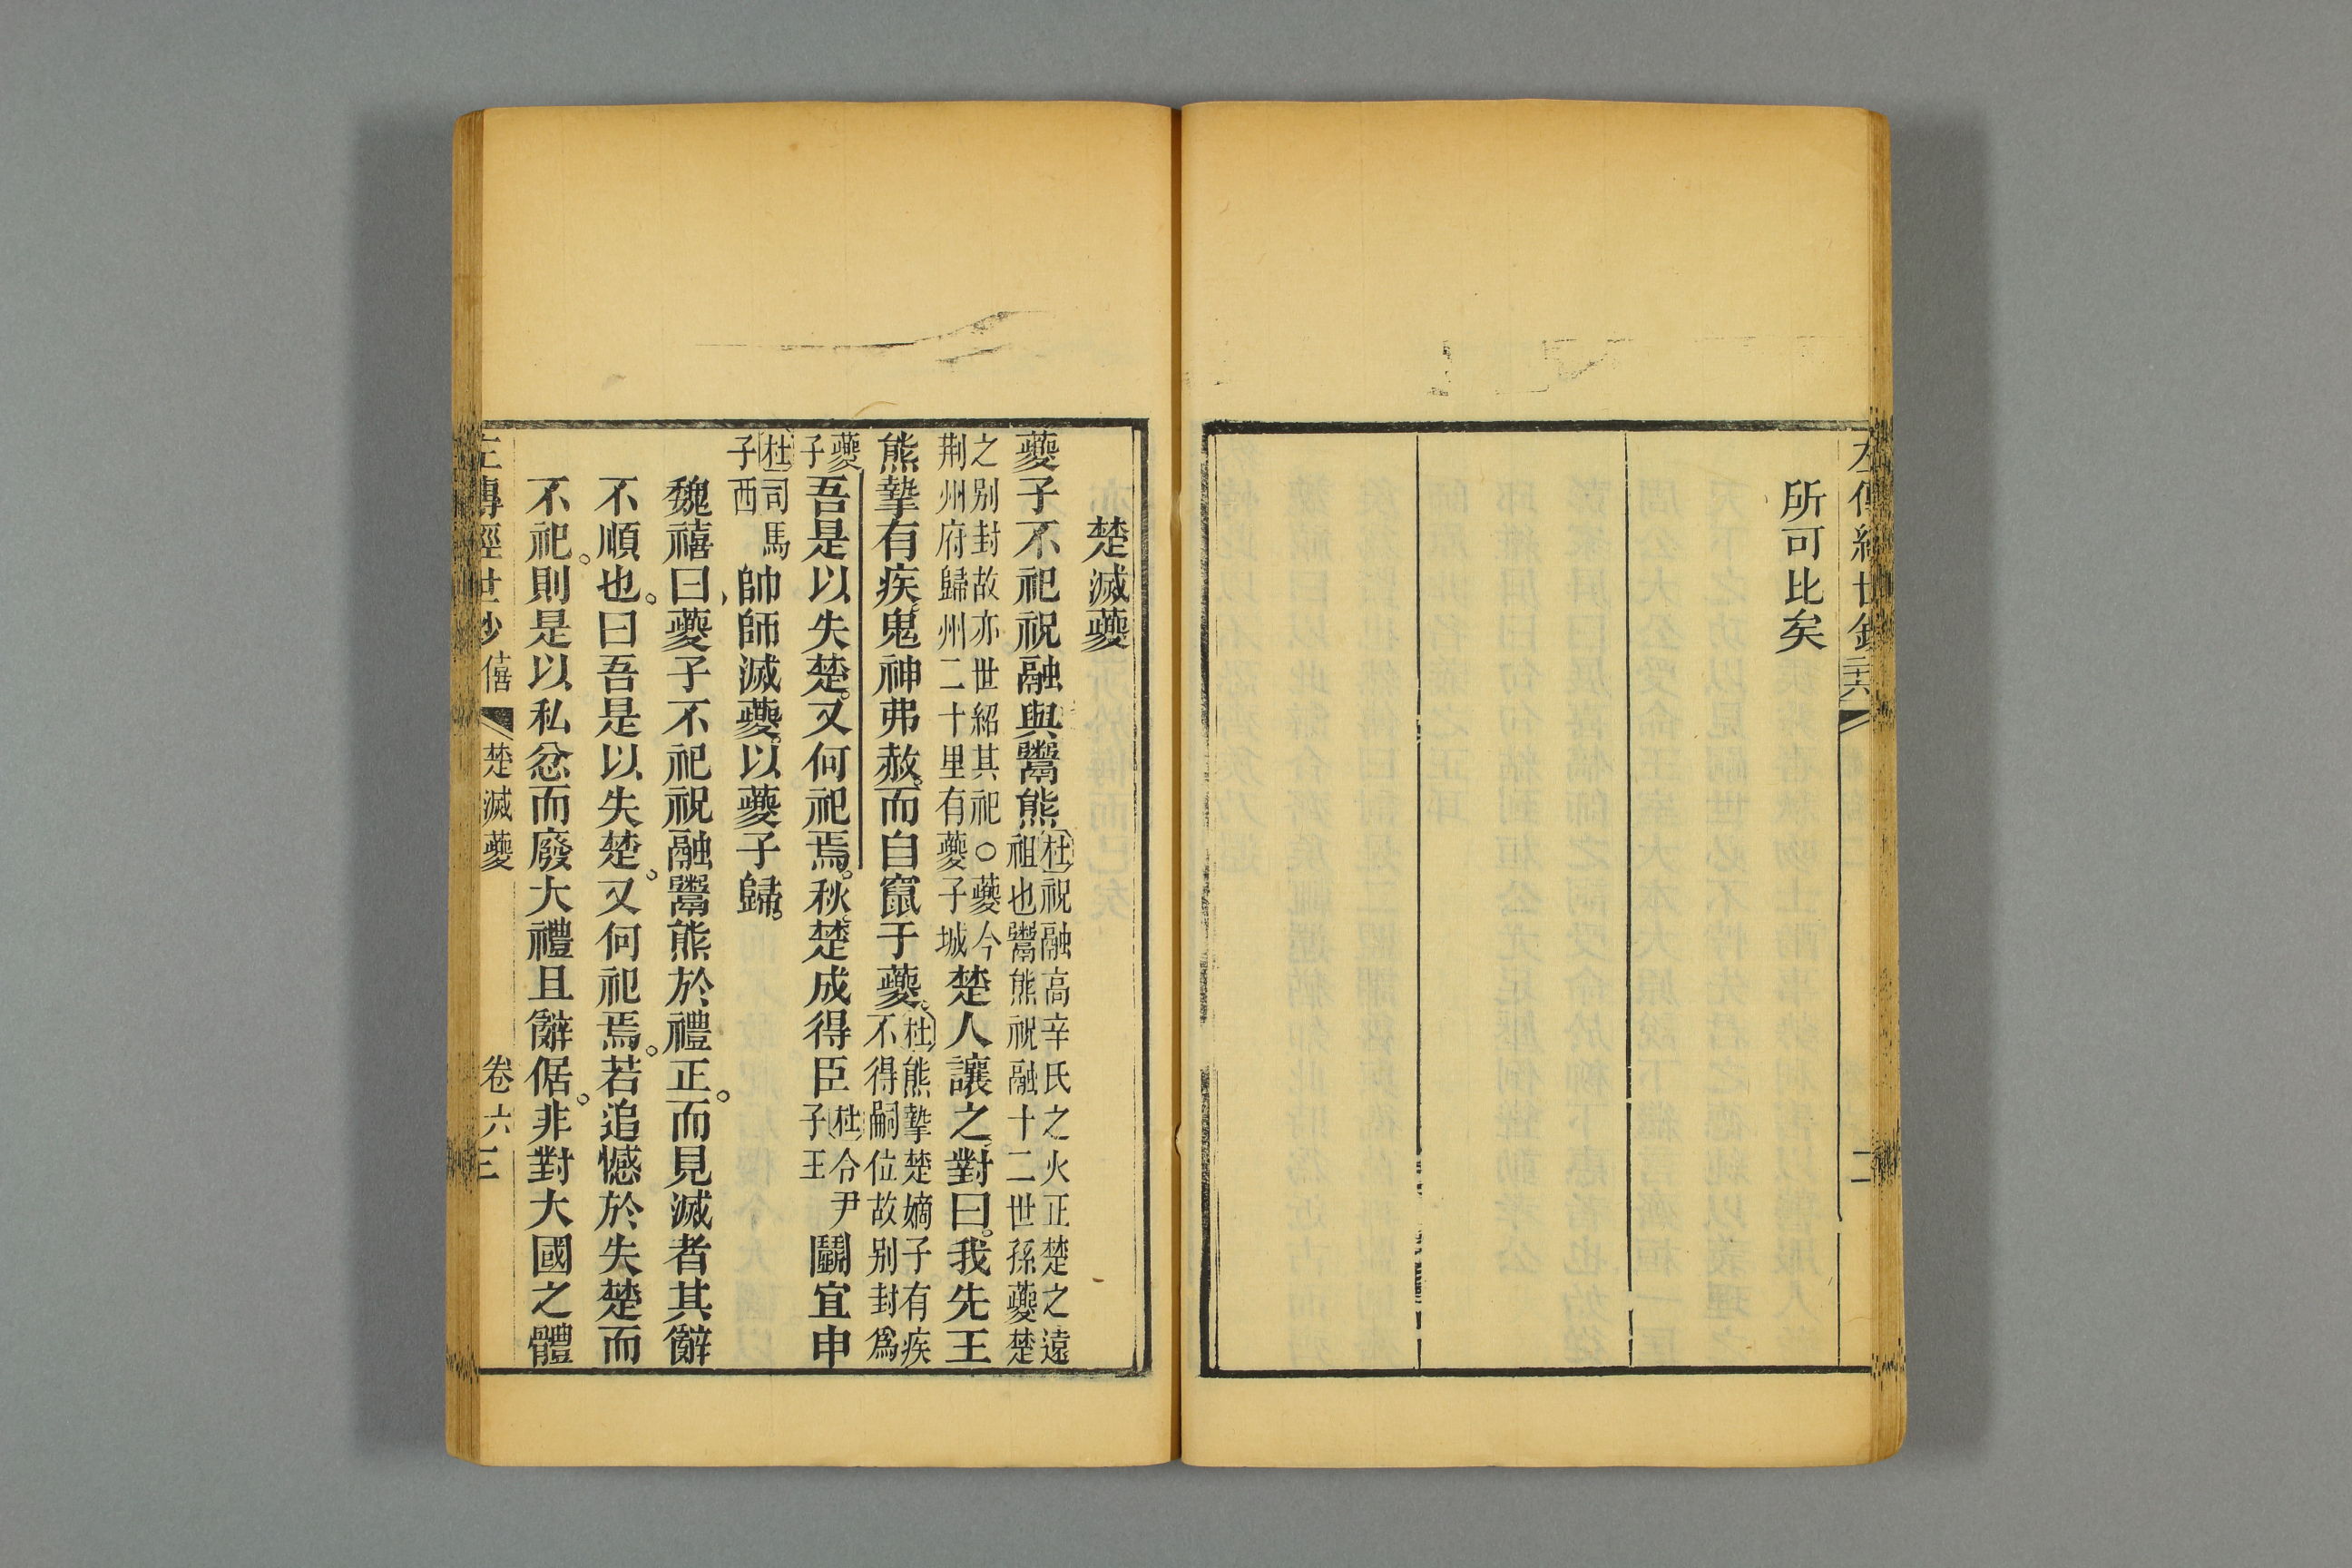 左傳經世鈔 二十六 二
所可比矣
楚滅夔
夔子不祀祝融與鬻熊杜祝融高辛氏之火正楚之遠祖也鬻熊祝融十二世孫夔楚
之別封故亦世紹其祀○夔今荆州府歸州二十里有夔子城楚人讓之對曰我先王
熊摯有疾鬼神弗赦而自竄于夔杜熊摯楚嫡子有疾不得嗣位故別封爲
夔子吾是以失楚又何祀焉秋楚成得臣杜令尹子玉鬬宜申
杜司馬子西帥師滅夔以夔子歸
魏禧曰夔子不祀祝融鬻熊於禮正而見滅者其辭
不順也曰吾是以失楚又何祀焉若追憾於失楚而
不祀則是以私忿而廢大禮且辭倨非對大國之體
左傳經世鈔 僖 楚滅夔 卷六 三